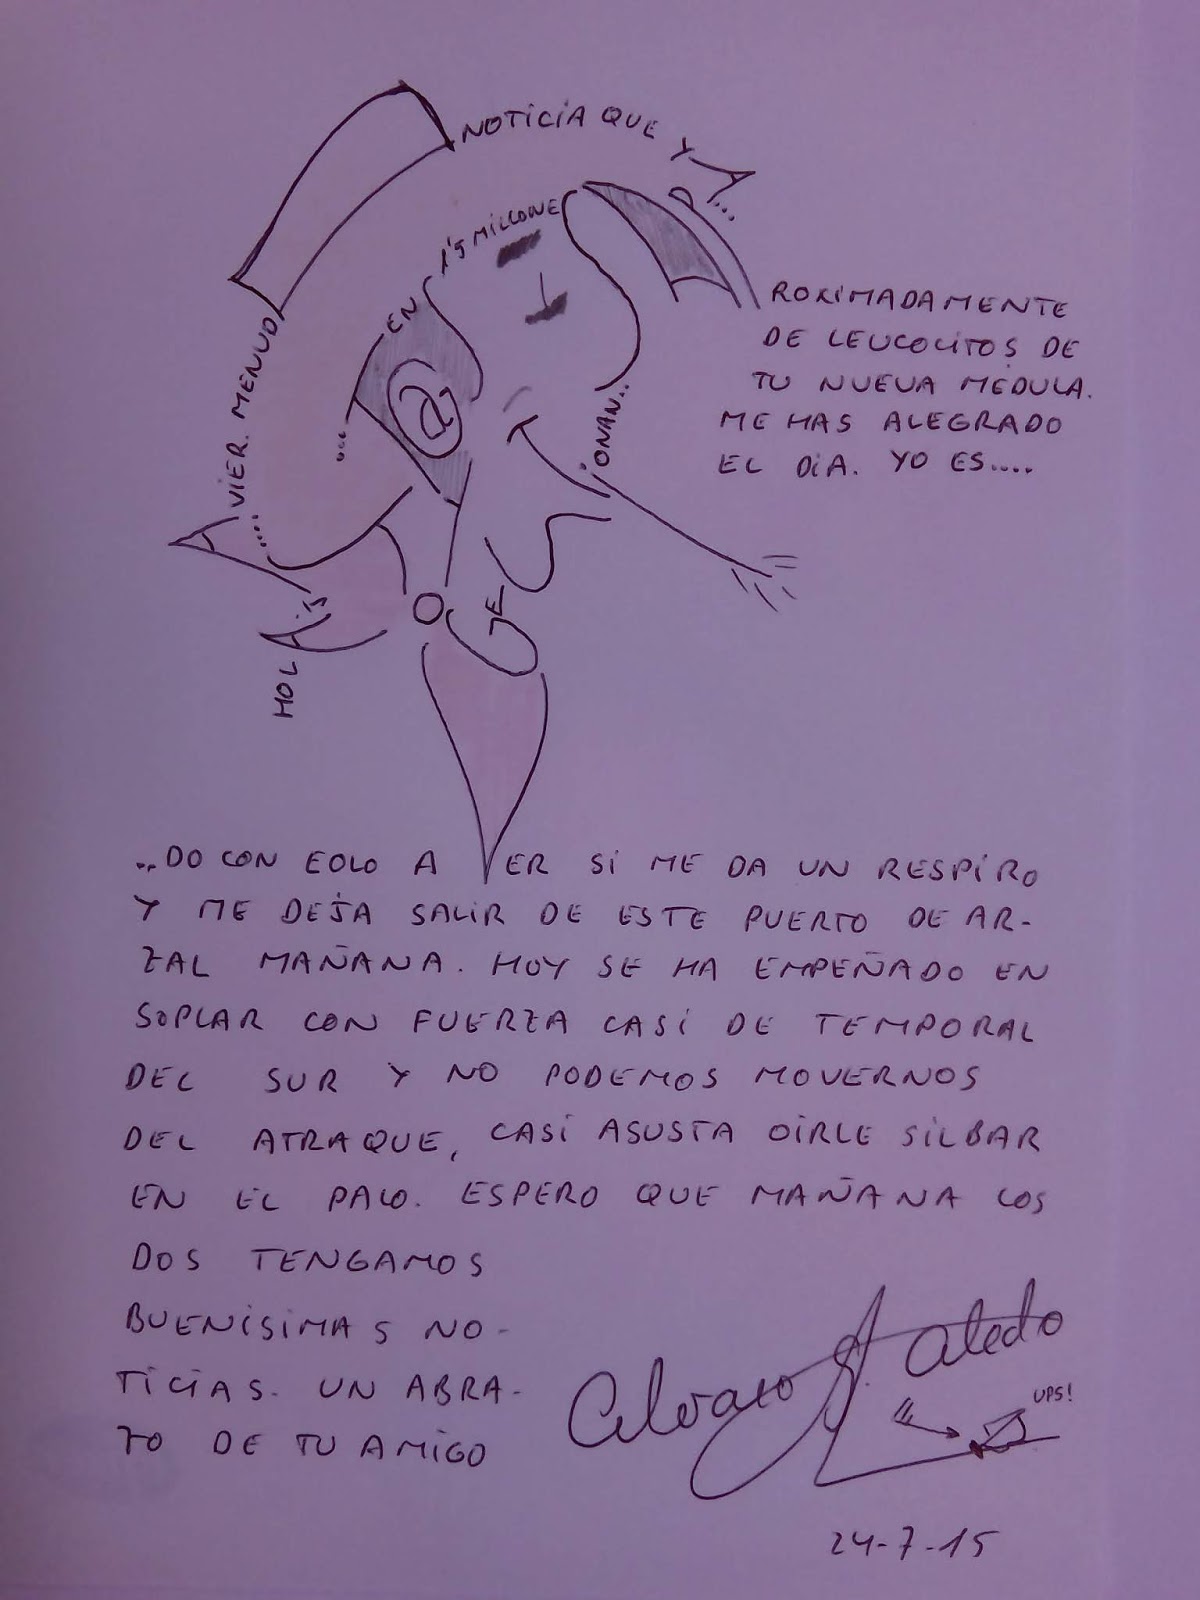 HOLA
AVIER. MENUD
NOTICIA QUE Y
....
...
EN
1'5 MILLONE
ROXIMADAMENTE
DE LEUCOCITOS DE
TU NUEVA MEDULA.
ME HAS ALEGRADO
EL DIA. YO ES....
@
IONAN..
JE
..DO CON EOLO A VER SI ME DA UN RESPIRO
Y ME DEJA SALIR DE ESTE PUERTO DE AR-
ZAL MAÑANA. HOY SE HA EMPEÑADO EN
SOPLAR CON FUERZA CASI DE TEMPORAL
DEL SUR Y NO PODEMOS MOVERNOS
DEL ATRAQUE, CASI ASUSTA OIRLE SILBAR
EN EL PALO. ESPERO QUE MAÑANA LOS
DOS TENGAMOS
BUENISIMAS NO-
TICIAS. UN ABRA-
ZO DE TU AMIGO
Alvaro
UPS!
24-7-15